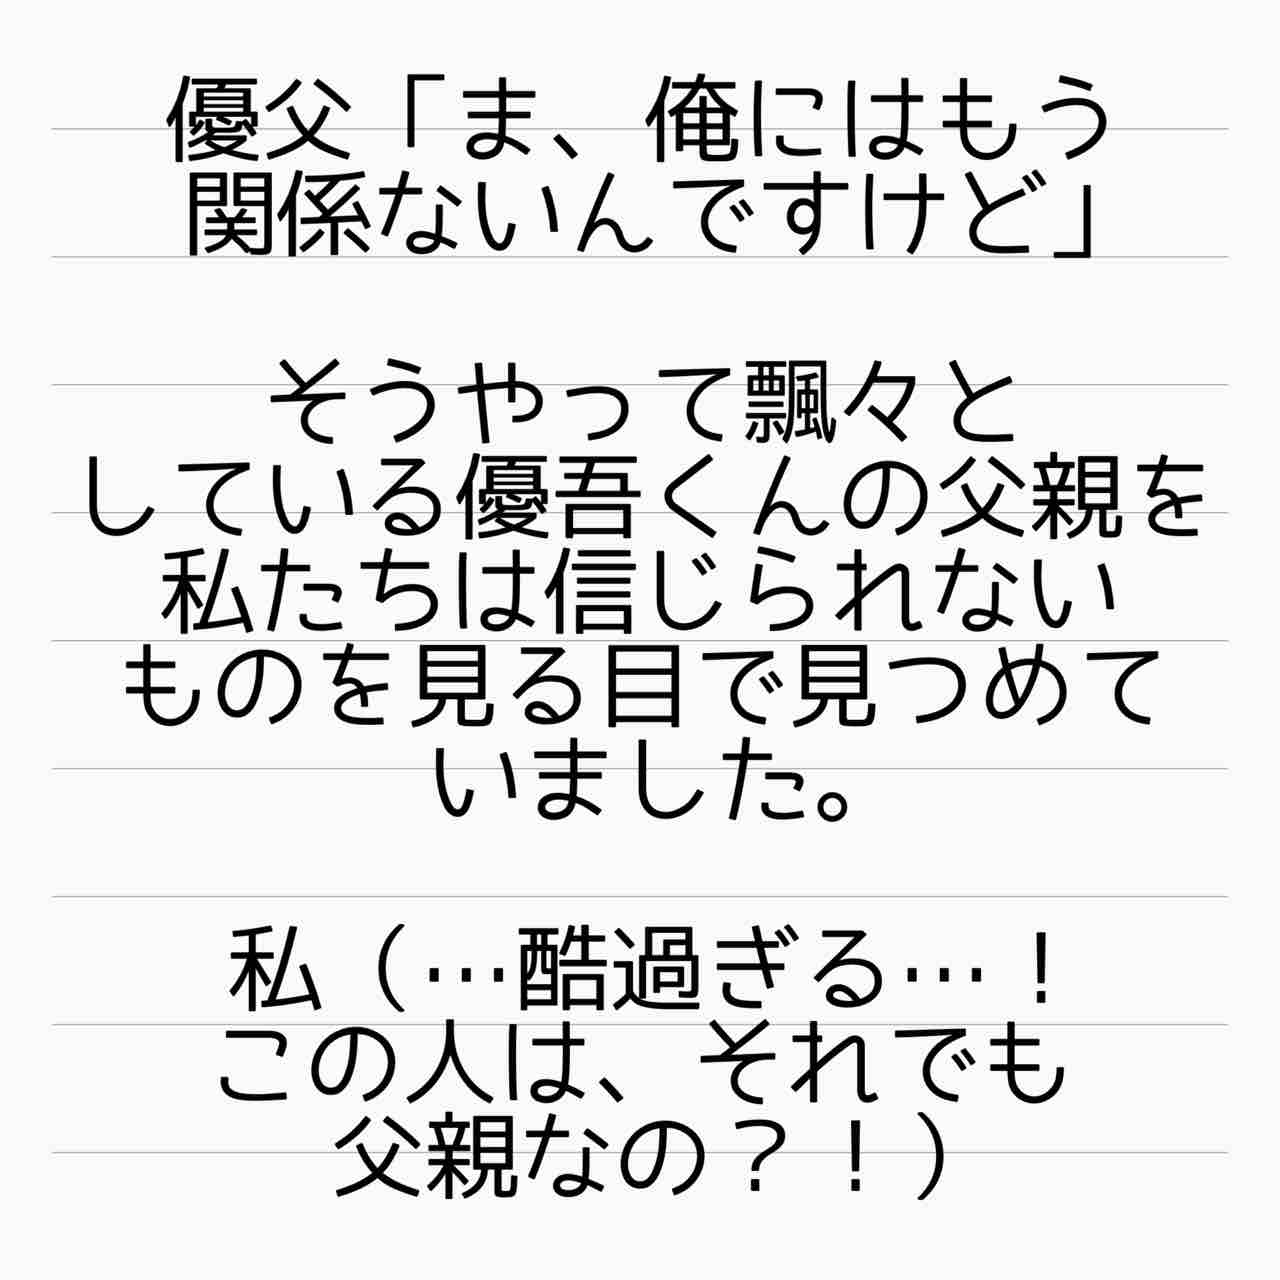 優父「ま、俺にはもう
関係ないんですけど」
そうやって飄々と
している優吾くんの父親を
私たちは信じられない
ものを見る目で見つめて
いました。
私（…酷過ぎる…！
この人は、それでも
父親なの？！）